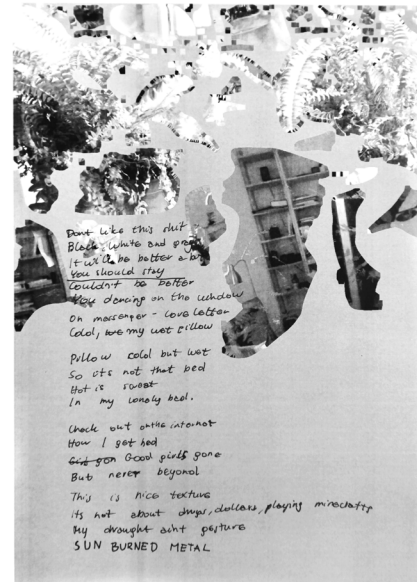 Dont like this shit
Black, white and gray
It will be better a b
You should stay
Couldn't be better
You dancing on the window
On messenger - Love letter
Cold, my wet pillow
Pillow cold but wet
So its not that bad
Hot is sweat
In my lonely bed.
Check out on the internet
How I get bad
Good girls gone
But never beyond
This is nice texture
its not about drugs, dollars, playing minecrafts
My draught aint gesture
SUN BURNED METAL